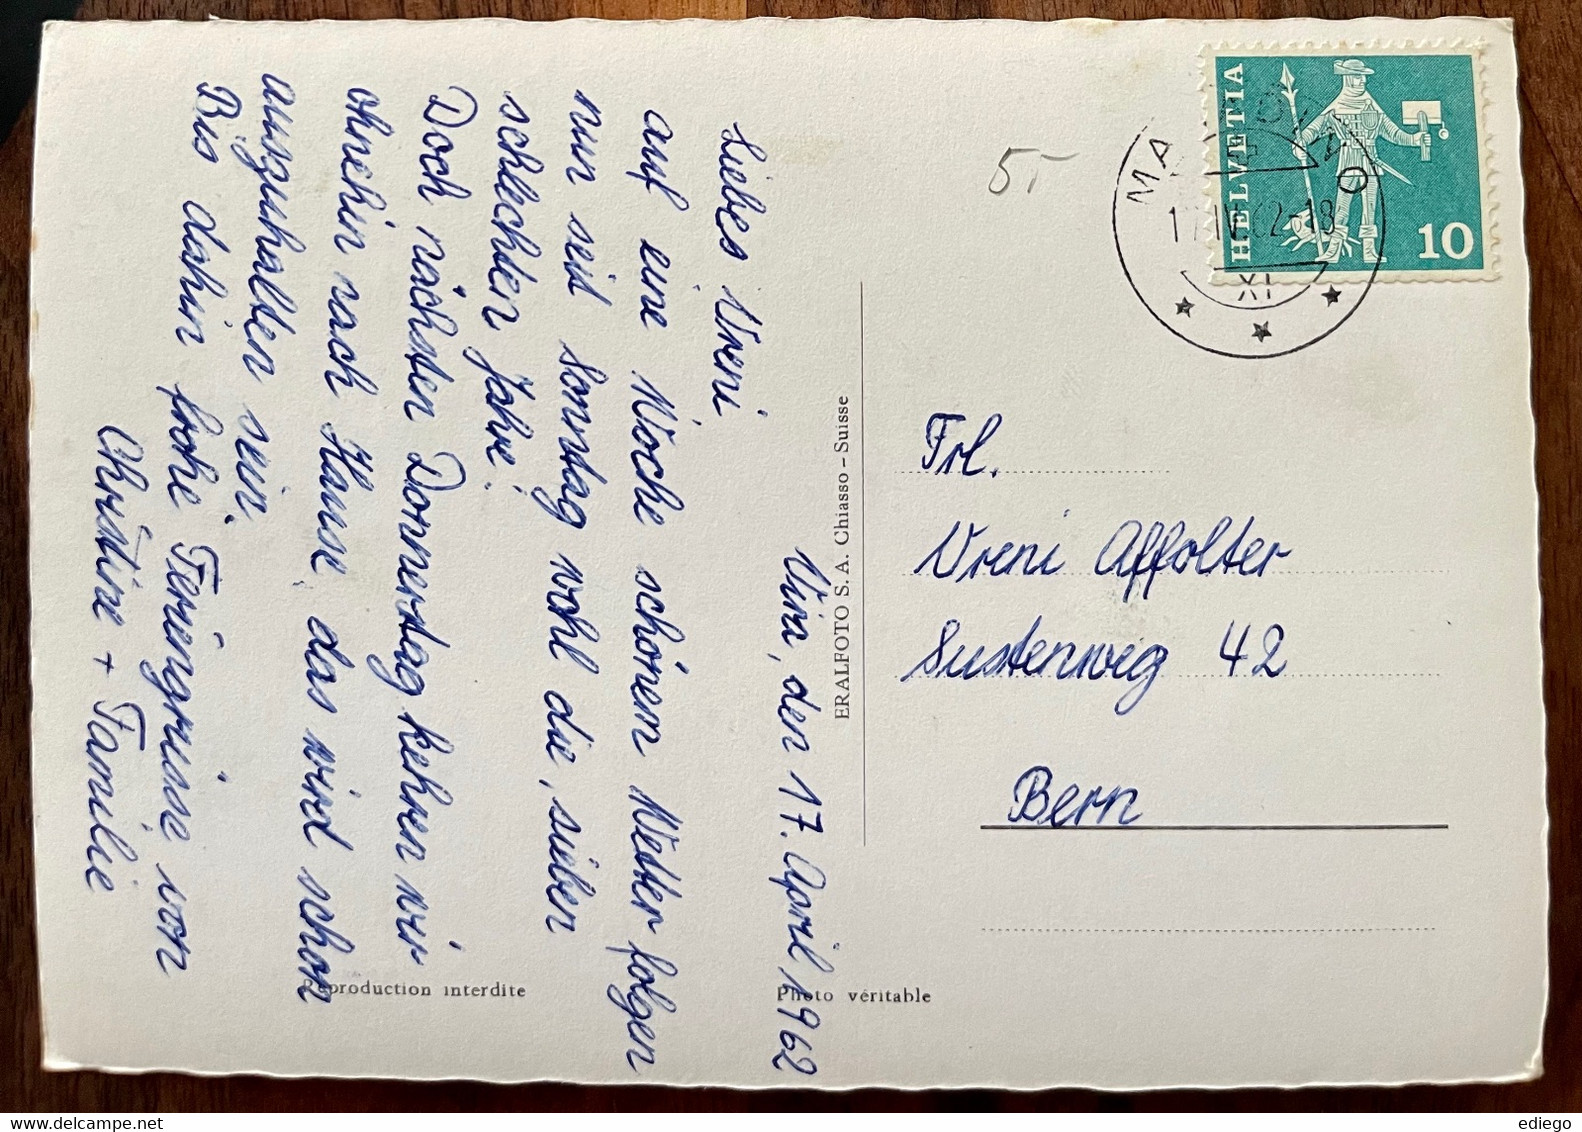 Vira, den 17. April 1962
Liebes Vreni
auf eine Woche schönem Wetter folgen
nun seid Sonntag wohl die „sieben
schlechten Jahre“.
Doch nächsten Donnerstag kehren wir
ohnehin nach Hause, das wird schon
auszuhalten sein.
Bis dahin frohe Feriengrüsse von
Christine + Familie
ERALFOTO S. A. Chiasso - Suisse
Reproduction interdite
Photo véritable
5.-
HELVETIA
10
17.IV.62-18
XI
Frl.
Vreni Affolter
Sustenweg 42
Bern
ediego
www.delcampe.net